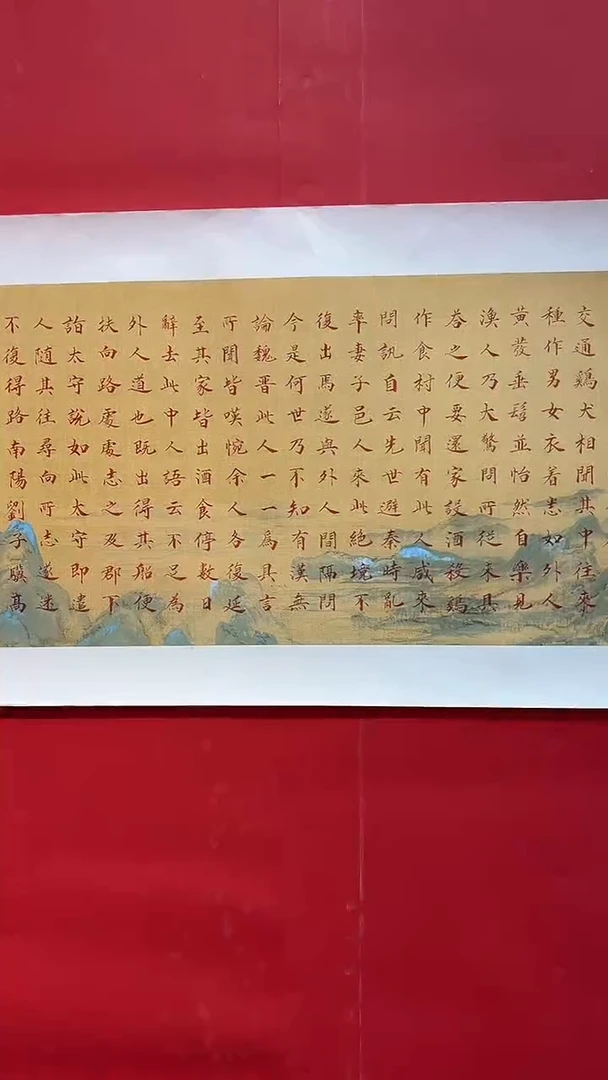 交通鷄犬相聞其中往來
種作男女衣着志如外人
黃髮垂髫並怡然自樂見
漁人乃大驚問所從来具
答之便要還家設酒殺鷄
作食村中聞有此人咸來
問訊自云先世避秦時亂
率妻子邑人來此絕境不
復出焉遂與外人間隔問
今是何世乃不知有漢無
論魏晉此人一一為具言
所聞皆嘆惋余人各復延
至其家皆出酒食停數日
辭去此中人語云不足為
外人道也既出得其船便
扶向路處處志之及郡下
詣太守說如此太守即遣
人隨其往尋向所志遂迷
不復得路南陽劉子驥高